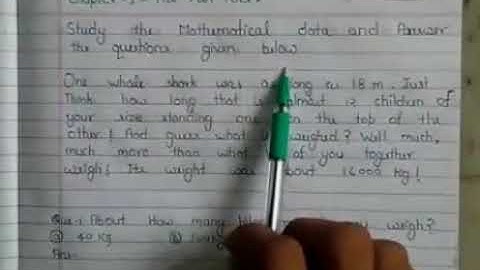 Study the Mathematical data and Answer
the questions given below
One whale shark was as long as 18 m. Just
Think how long that is almost 12 children of
your size standing one on the top of the
other! And guess what it weighed? Well much,
much more than what of you together
weigh! Its weight was about 16000 kg!
Que-1 About How many weigh?
(a) 40 Kg (b)
Ans-